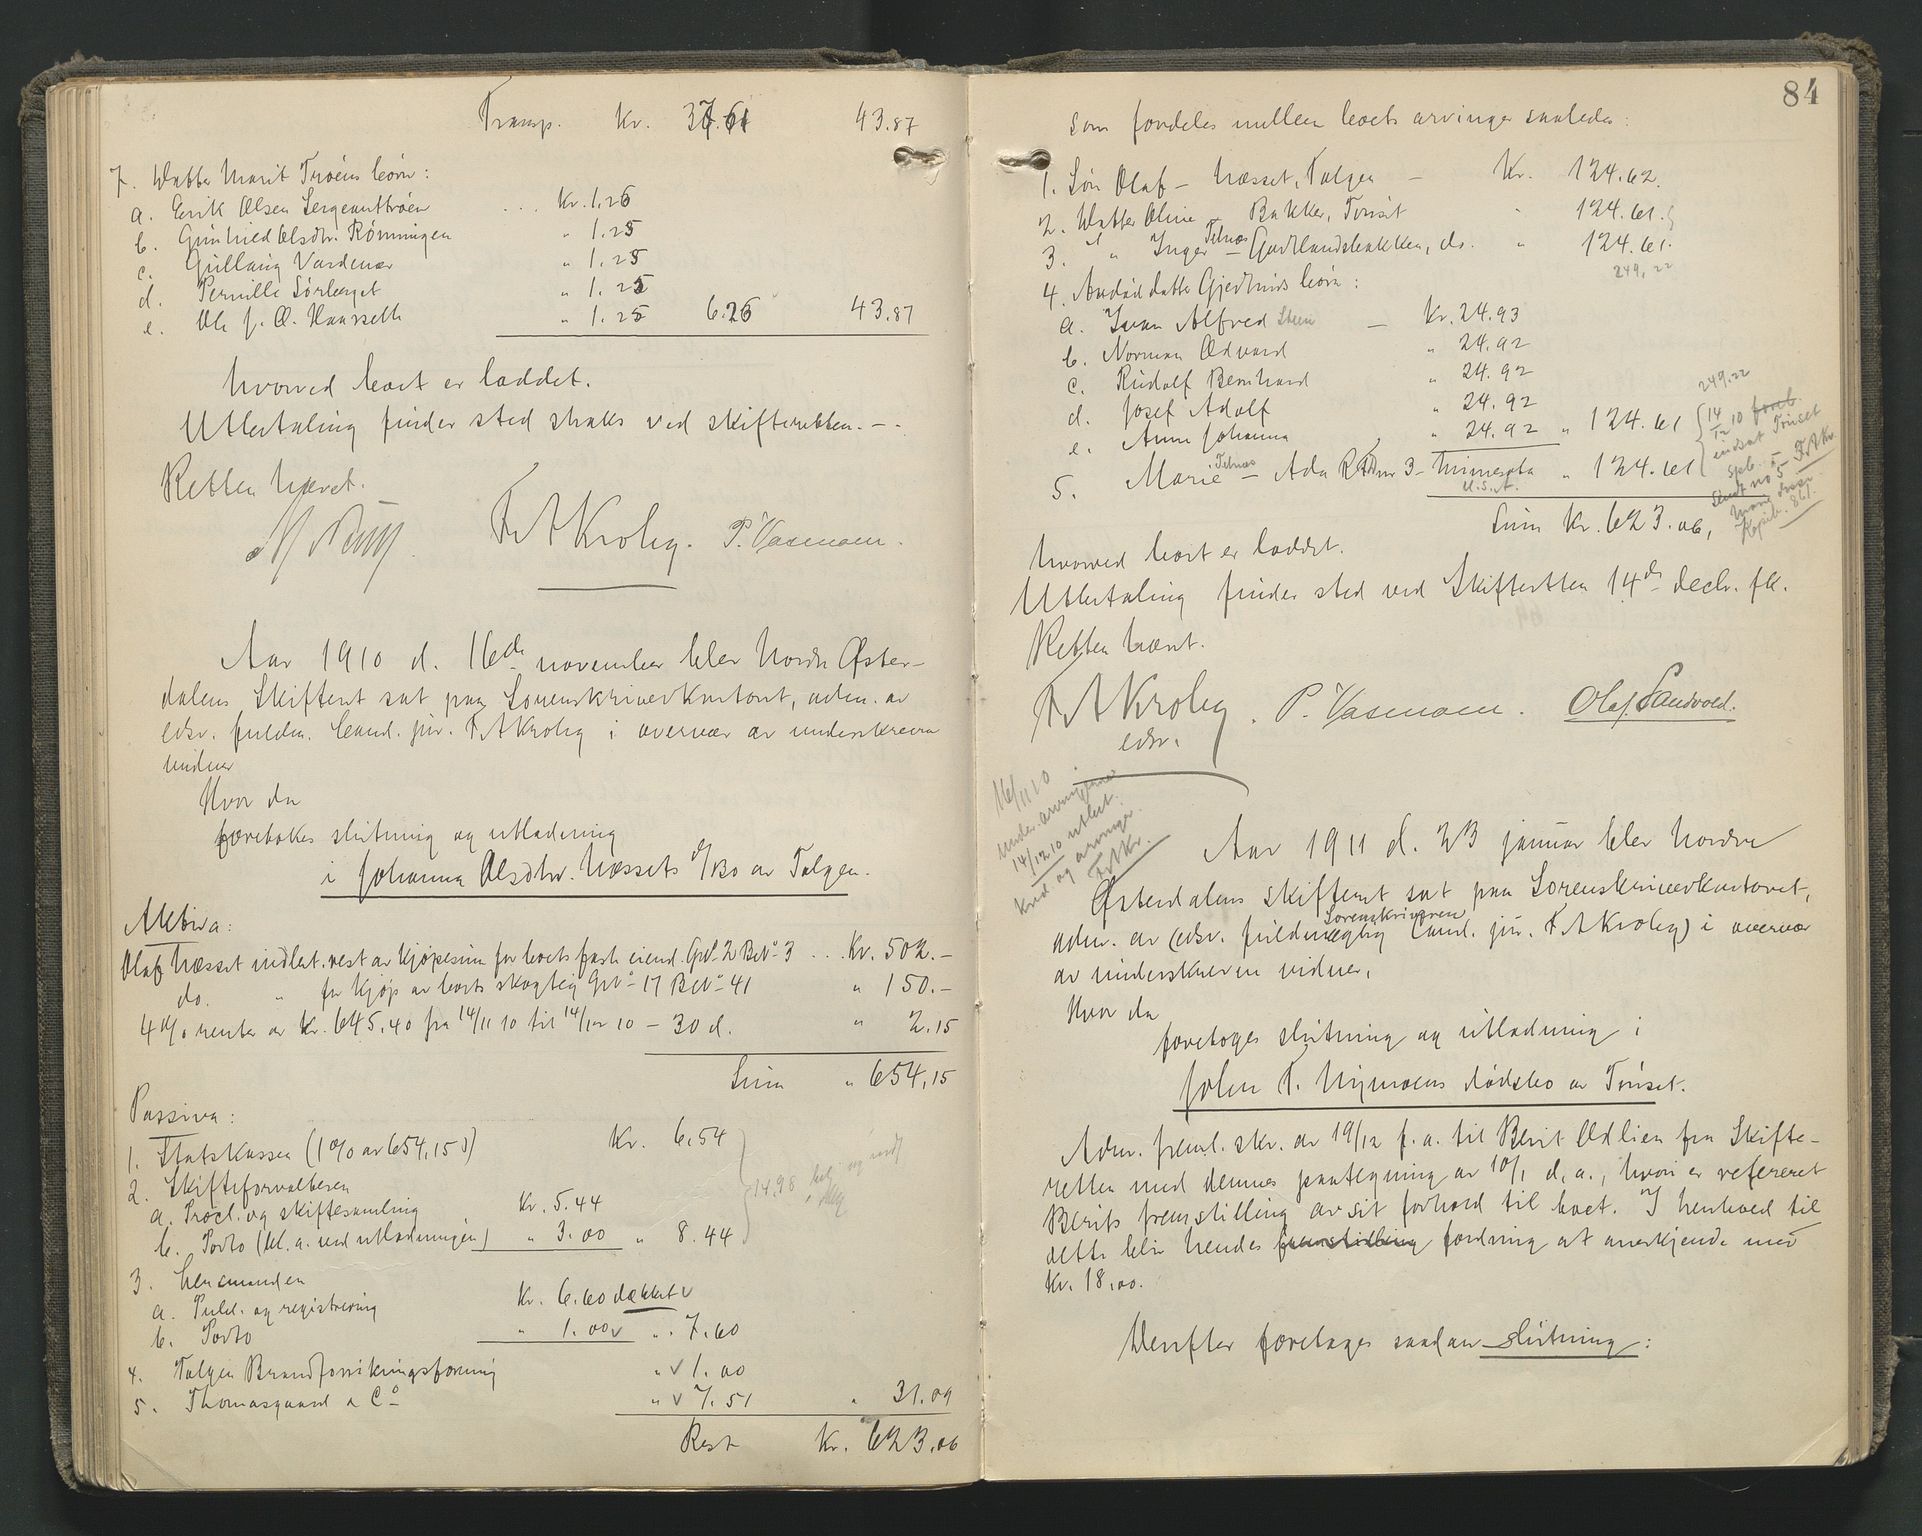 Transp. Kr. 37.61 43.87
7. Datter Marit Trøens børn:
a. Erik Olsen Sergeanttrøen ... Kr. 1.26
b. Gunhild Olsdtr. Rønningen " 1.25
c. Gullaug Vardenær " 1.25
d. Pernille Sørberget " 1.25
e. Ole J. O. Haarseth " 1.25 6.26 43.87
hvorved boet er sluttet.
Utbetaling finder sted straks ved skifteretten. –
Retten hævet.
F. A. Krohg. P. Vasmoen.
Aar 1910 d. 16de november blev Nordre Øster-
dalens Skifteret sat paa Sorenskriverkontoret, adm. av
edsv. fuldm. Cand. jur. F. A. Krohg i overvær av underskrevne
vidner
Hvor da
foretokes slutning og utlodning
i Johanna Olsdtr. Næssets d/bo av Tolgen.
Aktiva:
Olaf Næsset indbet. rest av kjøpesum for boets faste eiend. Gno 2 Bno 3 .. Kr. 502.–
do. " for kjøp av boets skogteig Gno 17 Bno 41 " 150.–
4 % renter av Kr. 645,40 fra 14/11 10 til 14/12 10 – 30 d. " 2.15
Sum " 654,15
Passiva:
1. Statskassen (1 % av 654,15) Kr. 6.54
2. Skifteforvalteren
a. Procl. og skiftesamling Kr. 5.44
b. Porto (bl. a. ved utlodningen) " 3.00 " 8.44
14.98
3. Lensmanden
a. Publ. og registrering Kr. 6.60 dækket v
b. Porto " 1.00 v " 7.60
4. Tolgen Brandforsikringsforening " v 1.00
5. Thomasgaard & Co " v 7.51 " 31.09
Rest Kr. 623.06
84
som fordeles mellem boets arvinger saaledes:
1. Søn Olaf – Næsset, Tolgen – Kr. 124.62.
2. Datter Oline – Bakken, Tønset " 124.61.
3. " Inger Telnæs – Godtlandsbakken, do. " 124.61.
249,22
4. Avdød datter Gjertruds børn:
a. Ivan Alfred Steen – Kr. 24.93
b. Norman Edvard " 24.92
c. Rudolf Bernhard " 24.92
d. Josef Adolf " 24.92
e. Anne Johanna " 24.92 " 124.61
5. Marie Telnæs – Ada R. No 3 – Minnesota " 124.61
U. S. A.
249.22
14/12 10
indsat Tønset
Spb. – F.A.Kr.
Sendt no 5
Kopieb. 861.
Sum Kr. 623.06,
hvorved boet er sluttet.
Utbetaling finder sted ved Skifteretten 14de decbr. fk.
Retten hævet.
F. A. Krohg. P. Vasmoen. Olaf Sandvold.
edsv.
16/11 10
14/12 10 utbet.
kred. og arvinger
F.A.Kr.
Aar 1911 d. 23 januar blev Nordre
Østerdalens skifteret sat paa Sorenskriverkontoret,
Sorenskriveren
adm. av (edsv. fuldmægtig Cand. jur. F. A. Krohg) i overvær
av underskrevne vidner.
Hvor da
foretoges slutning og utlodning i
John T. Nymoens dødsbo av Tønset.
Adm. freml. skr. av 19/12 f. a. til Berit Ødlien fra Skifte-
retten med dennes paategning av 10/1 d. a., hvori er refereret
Berits fremstilling av sit forhold til boet. I henhold til
dette blir hendes fremstilling fordring at anerkjende med
Kr. 18.00.
Derefter foretages saadan slutning: